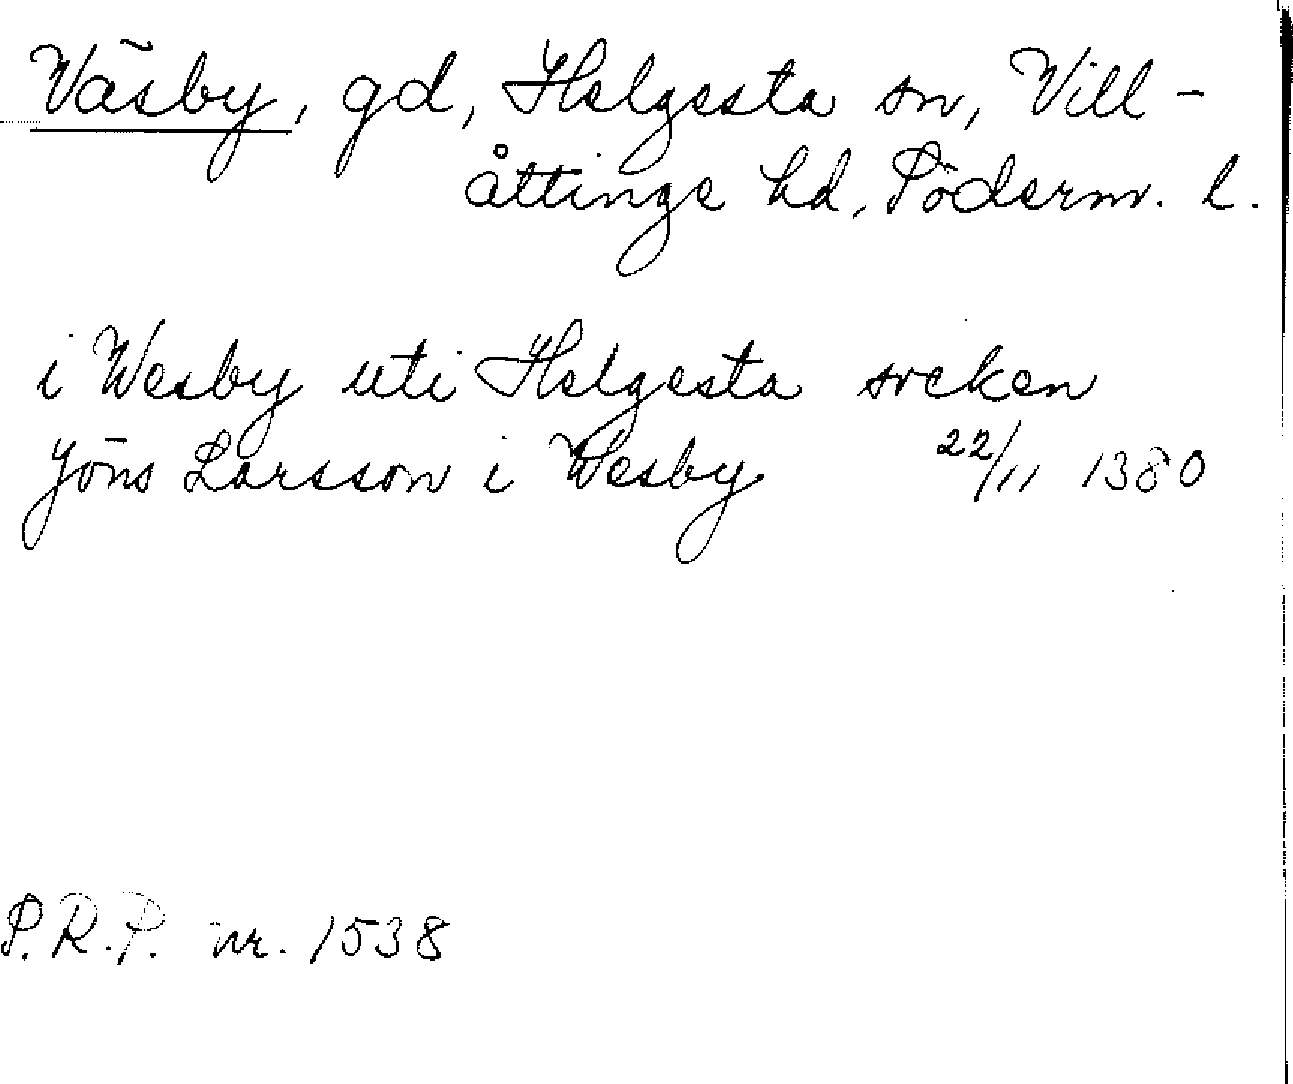 Väsby, gd, Helgesta sn, Vill-
åttinge hd, Söderm. l.
i Wesby uti Helgesta socken
Jöns Larsson i Wesby 22/11 1380
S.R.P. nr. 1538